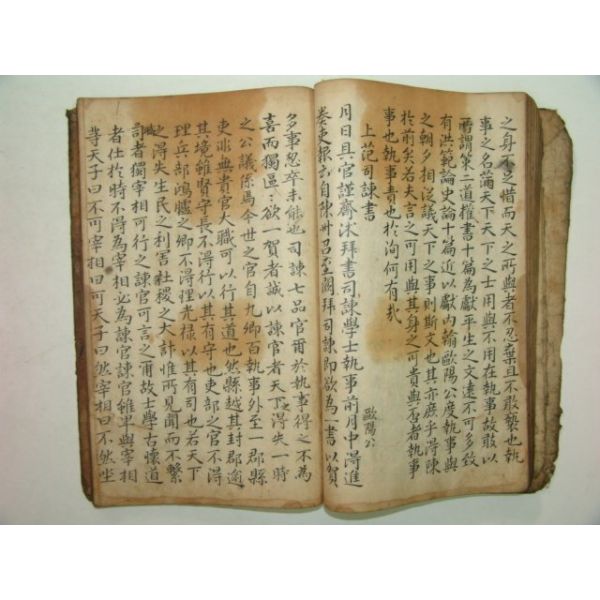 之身不足惜而天之所與者不忍棄且不敢褻也執
事之名滿天下天下之士用與不用在執事故敢以
所謂策二道權書十篇為獻平生之文遠不可多致
有洪範論史論十篇近以獻內翰歐陽公度執事與
之朝夕相從議天下之事則斯文也其亦庶乎得陳
於前矣若夫言之可用與其身之可貴與否者執事
事也執事責也於洵何有哉
上范司諫書
歐陽公
月日具官謹齋沐拜書司諫學士執事前月中得進
奏吏報云自陳州召至闕拜司諫即欲為一書以賀
多事怱卒未能也司諫七品官爾於執事得之不為
喜而獨區〻欲一賀者誠以諫官者天下之得失一時
之公議係焉今世之官自九卿百執事外至一郡縣
吏非無貴官大職可以行其道也然縣越其封郡逾
其境雖賢守長不得行以其有守也吏部之官不得
理兵部鴻臚之卿不得理光祿以其有司也若天下
之得失生民之利害社稷之大計惟所見聞而不繫
司者獨宰相可行之諫官可言之爾故士學古懷道
者仕於時不得為宰相必為諫官諫官雖卑與宰相
等天子曰不可宰相曰可天子曰然宰相曰不然坐